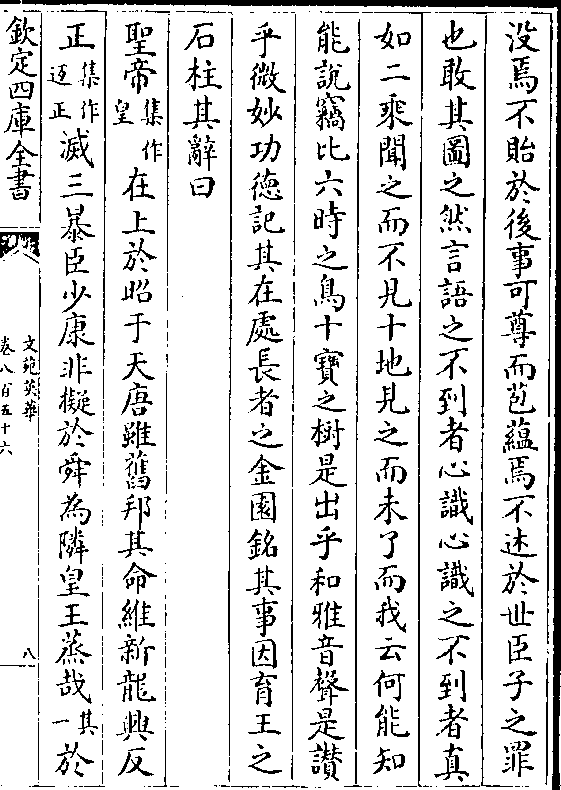 没焉不貽於後事可尊而苞蘊焉不述於世臣子之罪
也敢其圖之然言語之不到者心識心識之不到者真
如二乘聞之而不見十地見之而未了而我云何能知
能說竊比六時之鳥十寶之樹是出乎和雅音聲是讃
乎微妙功徳記其在處長者之金園銘其事因育王之
石柱其辭曰
聖帝集作皇在上於昭于天唐雖舊邦其命維新龍興反
正集作迈正滅三暴臣少康非擬於舜為隣皇王蒸哉其一於
欽定四庫全書
文苑英華
卷八百五十六
八